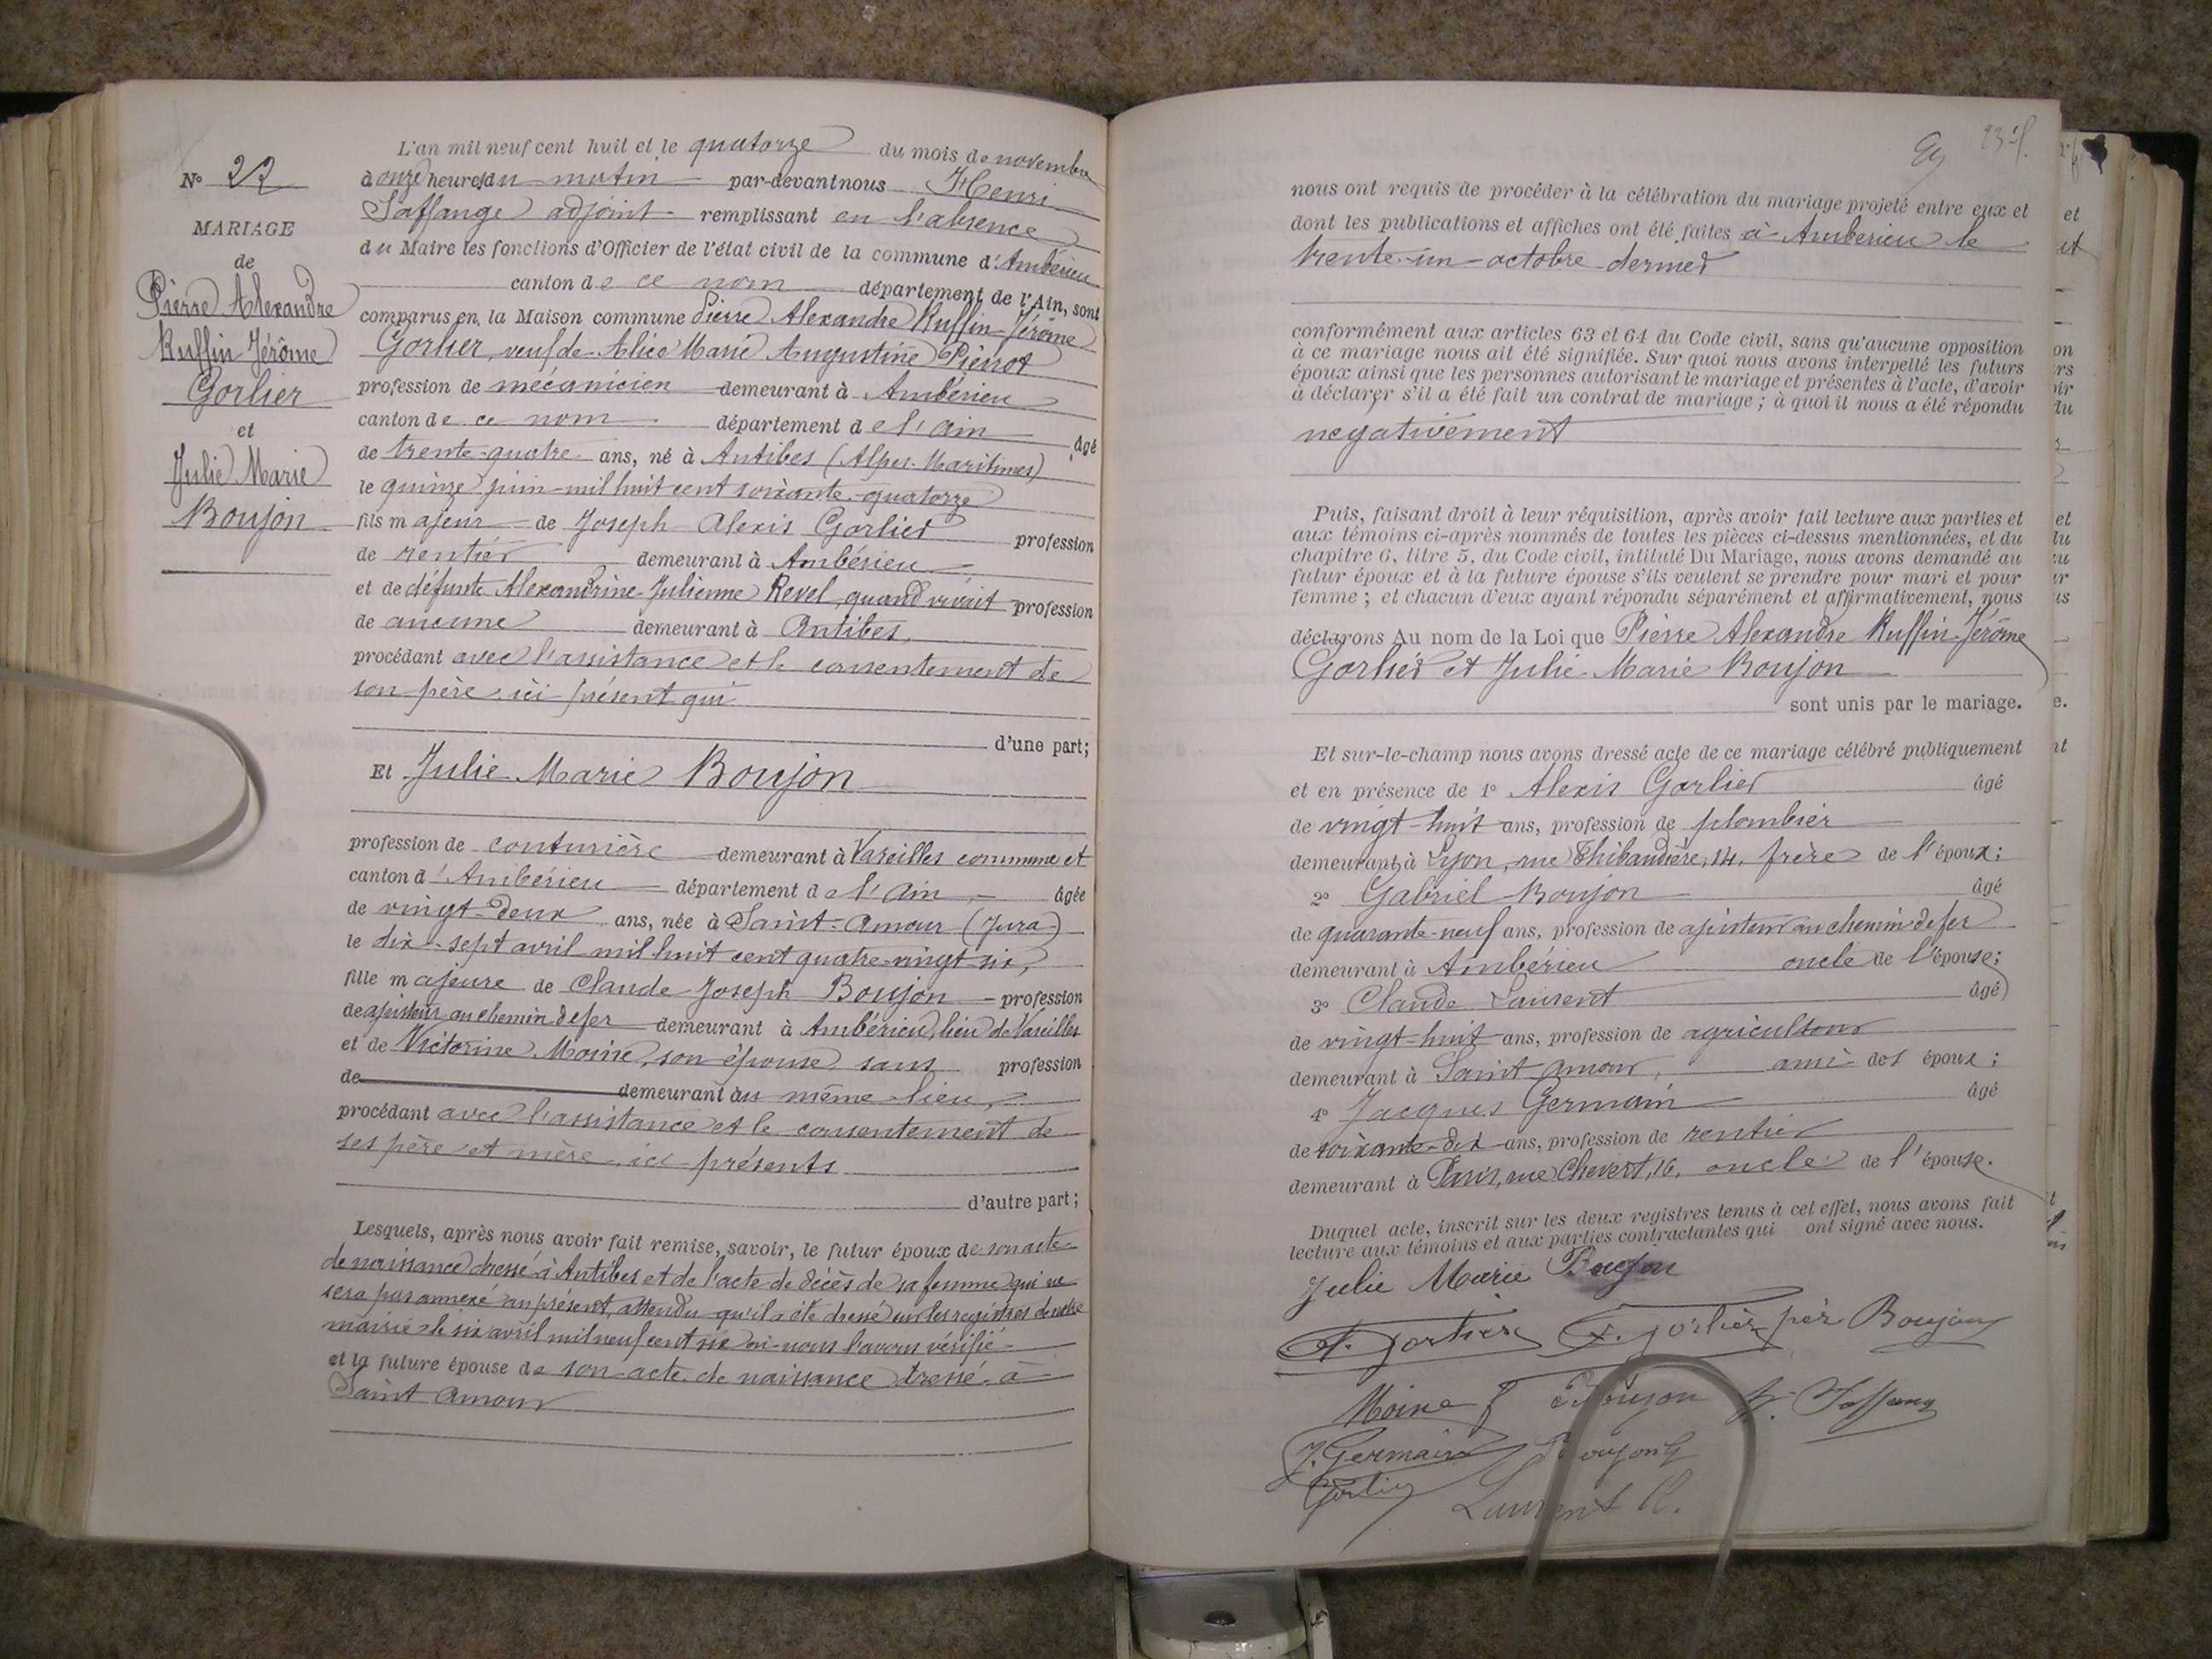 L'an mil neuf cent huit et le quatorze du mois de novembre
N° 22
à onze heures du matin par-devant nous Henri
MARIAGE
Saffange adjoint remplissant en l'absence
du Maire les fonctions d'Officier de l'état civil de la commune d'Ambérieu
de
canton de ce nom département de l'Ain, sont
Pierre Alexandre
comparus en la Maison commune Pierre Alexandre Ruffin Jérôme
Ruffin Jérôme
Gorlier, veuf de Alice Marie Augustine Pierrot
Gorlier
profession de mécanicien demeurant à Ambérieu
et
canton de ce nom département de l'Ain âgé
Julie Marie
de trente-quatre ans, né à Antibes (Alpes-Maritimes)
le quinze juin mil huit cent soixante-quatorze
Boujon
fils majeur de Joseph Alexis Gorlier profession
de rentier demeurant à Ambérieu
et de défunte Alexandrine Julienne Revel, quand vivait profession
de aucune demeurant à Antibes,
procédant avec l'assistance et le consentement de
son père ici présent qui
d'une part;
Et Julie Marie Boujon
profession de couturière demeurant à Vareilles commune et
canton d'Ambérieu département de l'Ain âgée
de vingt-deux ans, née à Saint-Amour (Jura)
le dix-sept avril mil huit cent quatre-vingt-six,
fille majeure de Claude Joseph Boujon profession
de ajusteur au chemin de fer demeurant à Ambérieu, lieu de Vareilles
et de Victorine Moine, son épouse sans profession
de demeurant au même lieu,
procédant avec l'assistance et le consentement de
ses père et mère, ici présents
d'autre part;
Lesquels, après nous avoir fait remise, savoir, le futur époux de son acte
de naissance dressé à Antibes et de l'acte de décès de sa femme qui ne
sera pas annexé au présent, attendu qu'il a été dressé sur les registres de notre
mairie le six avril mil neuf cent six où nous l'avons vérifié
et la future épouse de son acte de naissance dressé à
Saint Amour
nous ont requis de procéder à la célébration du mariage projeté entre eux et
dont les publications et affiches ont été faites à Ambérieu le
trente-un octobre dernier
conformément aux articles 63 et 64 du Code civil, sans qu'aucune opposition
à ce mariage nous ait été signifiée. Sur quoi nous avons interpellé les futurs
époux ainsi que les personnes autorisant le mariage et présentes à l'acte, d'avoir
à déclarer s'il a été fait un contrat de mariage; à quoi il nous a été répondu
négativement
Puis, faisant droit à leur réquisition, après avoir fait lecture aux parties et
aux témoins ci-après nommés de toutes les pièces ci-dessus mentionnées, et du
chapitre 6, titre 5, du Code civil, intitulé Du Mariage, nous avons demandé au
futur époux et à la future épouse s'ils veulent se prendre pour mari et pour
femme; et chacun d'eux ayant répondu séparément et affirmativement, nous
déclarons Au nom de la Loi que Pierre Alexandre Ruffin Jérôme
Gorlier et Julie Marie Boujon
sont unis par le mariage.
Et sur-le-champ nous avons dressé acte de ce mariage célébré publiquement
et en présence de 1° Alexis Gorlier âgé
de vingt-huit ans, profession de plombier
demeurant à Lyon, rue Thibaudière, 14, frère de l'époux;
2° Gabriel Boujon âgé
de quarante-neuf ans, profession de ajusteur au chemin de fer
demeurant à Ambérieu oncle de l'épouse;
3° Claude Laurent âgé
de vingt-huit ans, profession de agriculteur
demeurant à Saint Amour, ami des époux;
4° Jacques Germain âgé
de soixante-dix ans, profession de rentier
demeurant à Paris, rue Chevert, 16, oncle de l'épouse.
Duquel acte, inscrit sur les deux registres tenus à cet effet, nous avons fait
lecture aux témoins et aux parties contractantes qui ont signé avec nous.
Julie Marie Boujon
A. Gorlier Gorlier pèr Boujon
Moine f Boujon H. Saffange
J. Germain Boujon G
Gorlier
Laurent Cl.